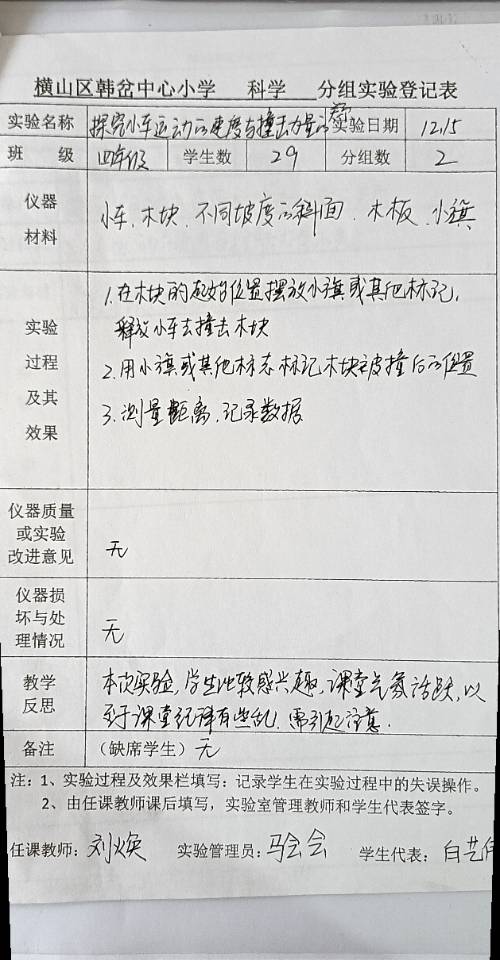 横山区韩岔中心小学 科学 分组实验登记表
实验名称 探究小车运动的速度与撞击力量的 实验日期 12.15
班 级 四年级 学生数 29 分组数 2
仪器材料 小车、木块、不同坡度的斜面、木板、小旗
实验过程及其效果
1.在木块的起始位置摆放小旗或其他标记,
释放小车去撞击木块
2.用小旗或其他标志标记木块被撞后的位置
3.测量距离、记录数据
仪器质量或实验改进意见 无
仪器损坏与处理情况 无
教学反思 本次实验,学生比较感兴趣,课堂气氛活跃,以
至于课堂纪律有些乱,需引起注意.
备注 (缺席学生)无
注：1、实验过程及效果栏填写：记录学生在实验过程中的失误操作。
2、由任课教师课后填写，实验室管理教师和学生代表签字。
任课教师：刘焕 实验管理员：马会会 学生代表：白艺